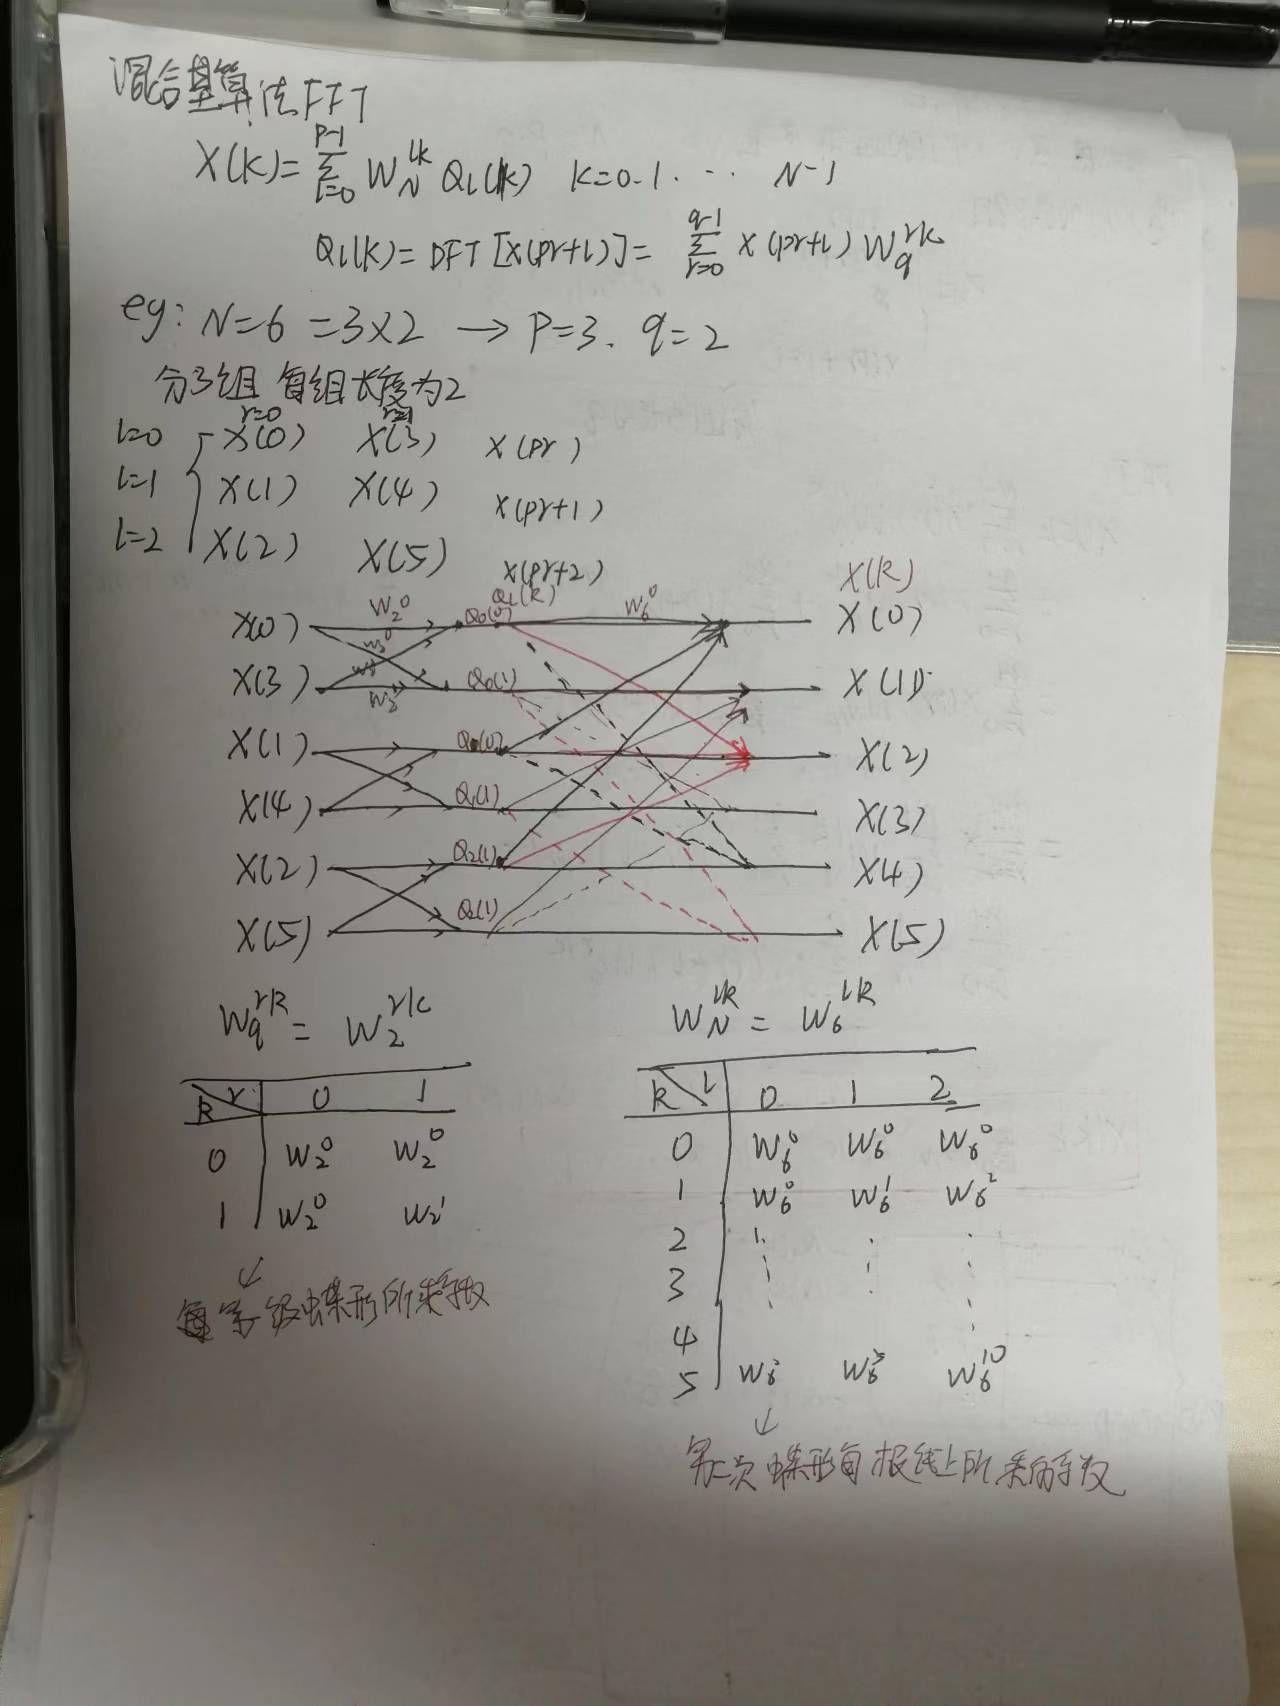 混合基算法FFT
X(k)=∑_{l=0}^{p-1} W_N^{lk} Q_l(k) k=0.1. ··· N-1
Q_l(k)=DFT[x(pr+l)]=∑_{r=0}^{q-1} x(pr+l) W_q^{rk}
eg: N=6 =3×2 → P=3. q=2
分3组 每组长度为2
r=0 r=1
l=0 X(0) X(3) X(pr)
l=1 X(1) X(4) X(pr+1)
l=2 X(2) X(5) X(pr+2)
Q_l(k) X(k)
X(0) W_2^0 Q_0(0) W_6^0 X(0)
X(3) Q_0(1) X(1)
X(1) X(2)
X(4) Q_1(1) X(3)
X(2) Q_2(1) X(4)
X(5) Q_2(1) X(5)
W_q^{rk} = W_2^{rk} W_N^{lk} = W_6^{lk}
k r 0 1
0 W_2^0 W_2^0
1 W_2^0 W_2^1
k l 0 1 2
0 W_6^0 W_6^0 W_6^0
1 W_6^0 W_6^1 W_6^2
2
3
4
5 W_6 W_6^5 W_6^10
↓
级蝶形所乘系数
↓
第二次蝶形每根线上所乘的系数